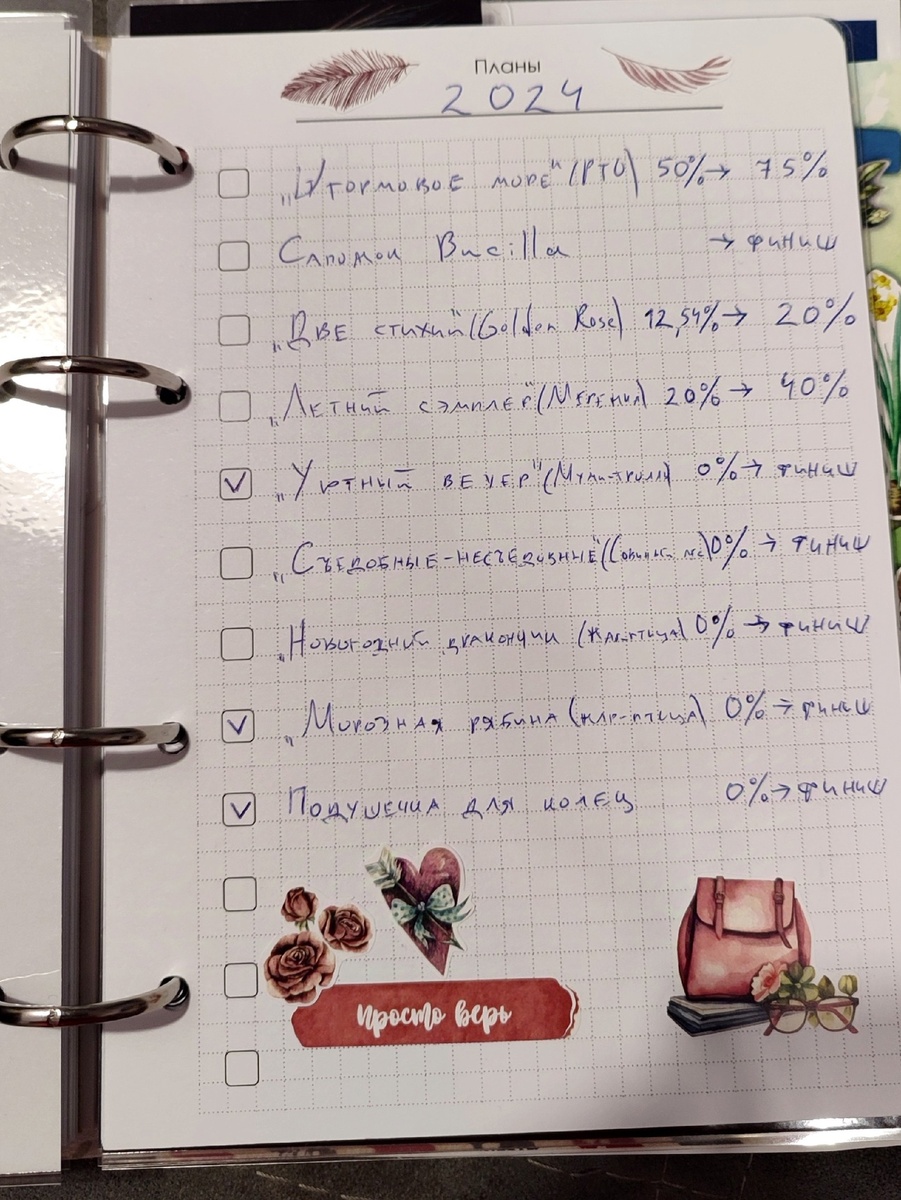 Планы
2024
„Штормовое море" (РТО) 50% → 75%
Сапожок Bucilla → финиш
„Две стихии" (Golden Rose) 12,54% → 20%
„Летний сэмплер" (Мережка) 20% → 40%
„Уютный вечер" (Мули-тролли) 0% → финиш
„Съедобные-несъедобные" 0% → финиш
„Новогодний дракончик (Жар-птица) 0% → финиш
„Морозная рябина (Жар-птица) 0% → финиш
Подушечка для колец 0% → финиш
просто верь